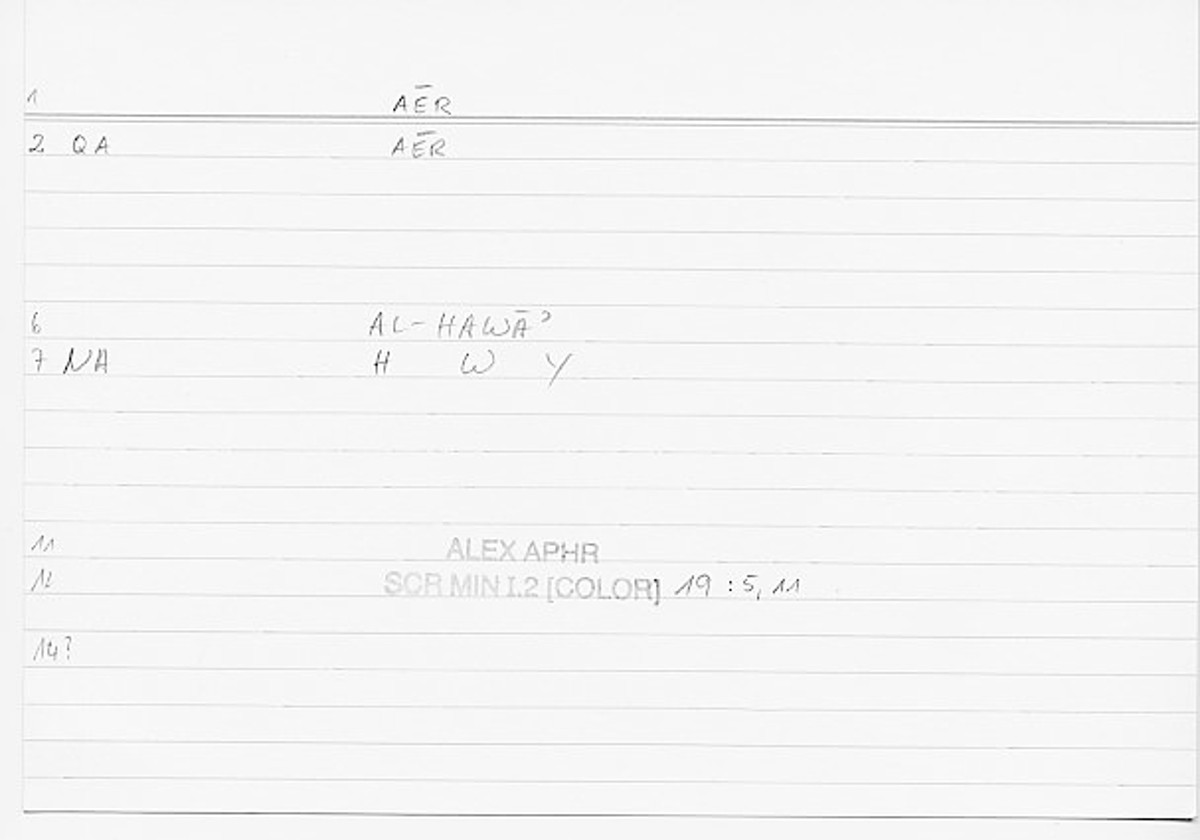 1 AĒR
2 QA AĒR
6 AL-HAWĀʾ
7 NA H W Y
11 ALEX APHR
12 SCR MIN I.2 [COLOR] 19 : 5, 11
14?